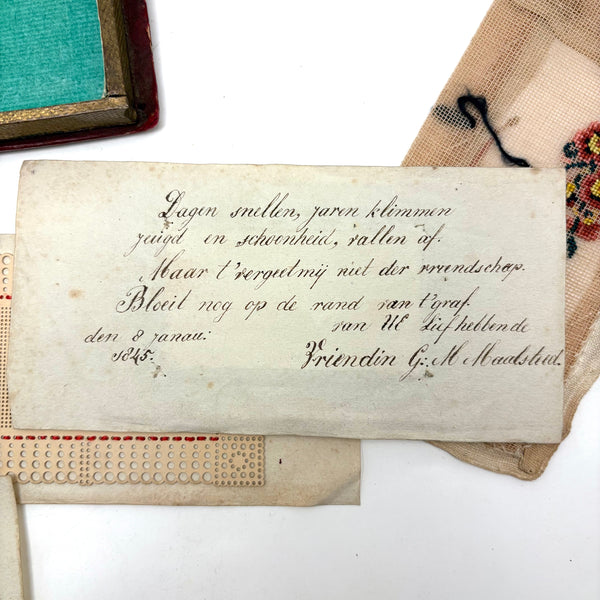 Dagen snellen, jaren klimmen
jeugd en schoonheid, vallen af.
Maar t'vergeetmij niet der vriendschap.
Bloeit nog op de rand van t'graf.
van UE Liefhebbende
den 8 Janau:
1845.
Vriendin G: M Maalsteed.